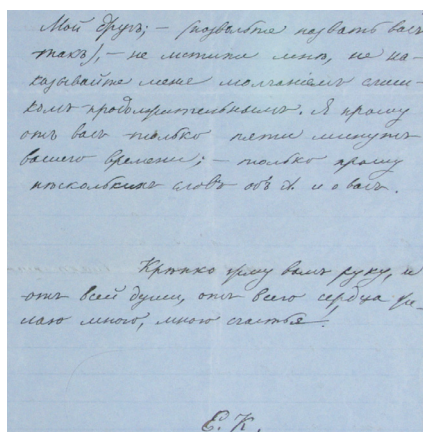 Мой другъ; – (позвольте назвать васъ
такъ), – не мстите мнѣ, не на-
казывайте меня молчаніемъ слиш-
комъ продолжительнымъ. Я прошу
отъ васъ только пяти минутъ
вашего времени; – только прошу
нѣсколькихъ словъ объ А и о васъ.
Крѣпко жму вамъ руку, и
отъ всей души, отъ всего сердца же-
лаю много, много счастья!
Е. К.